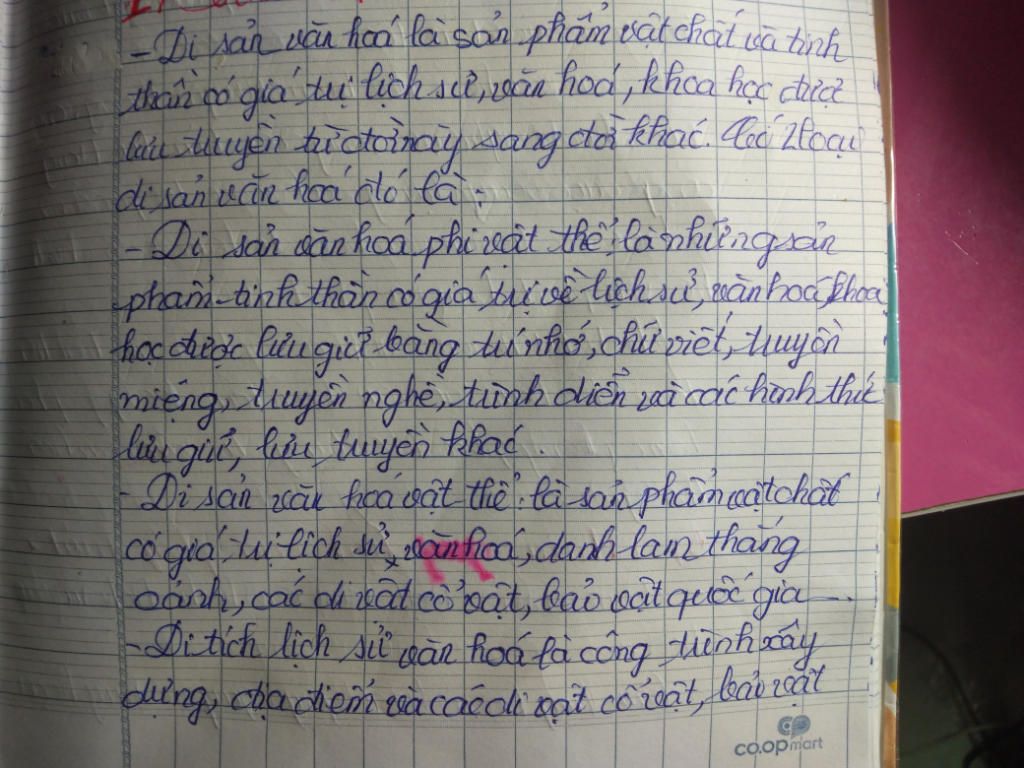 - Di sản văn hoá là sản phẩm vật chất và tinh
thần có giá trị lịch sử, văn hoá, khoa học được
lưu truyền từ đời này sang đời khác. Có 2 loại
di sản văn hoá đó là:
- Di sản văn hoá phi vật thể: là những sản
phẩm tinh thần có giá trị về lịch sử, văn hoá, khoa
học được lưu giữ bằng trí nhớ, chữ viết, truyền
miệng, truyền nghề, trình diễn và các hình thức
lưu giữ, lưu truyền khác.
- Di sản văn hoá vật thể: là sản phẩm vật chất
có giá trị lịch sử, văn hoá, danh lam thắng
cảnh, các di vật cổ vật, bảo vật quốc gia
- Di tích lịch sử văn hoá là công trình xây
dựng, địa điểm và các di vật cổ vật, bảo vật
co.opmart